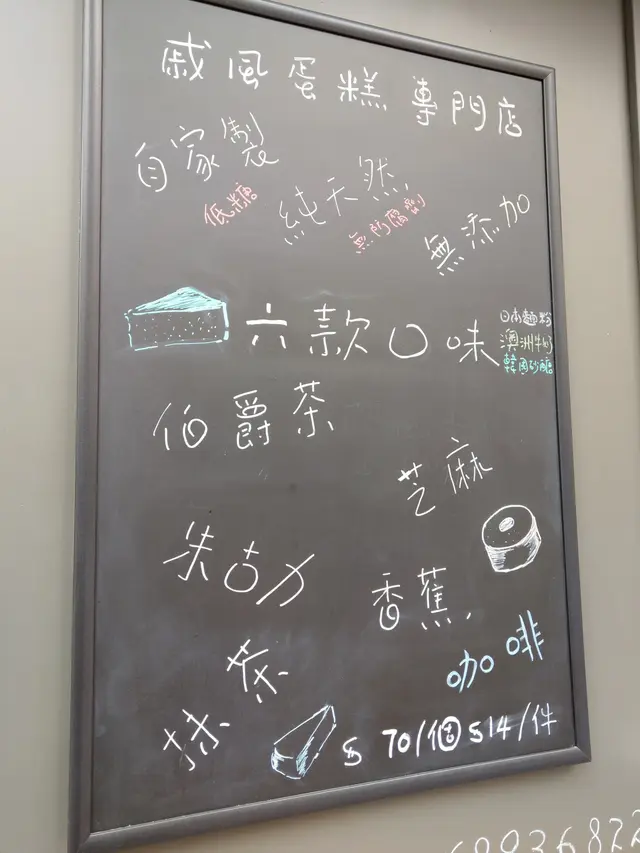 戚風蛋糕專門店
自家製
低糖
純天然
無防腐劑
無添加
六款口味
日本麵粉
澳洲牛奶
韓國砂糖
伯爵茶
芝麻
朱古力
香蕉
抹茶
咖啡
$70/個 $14/件